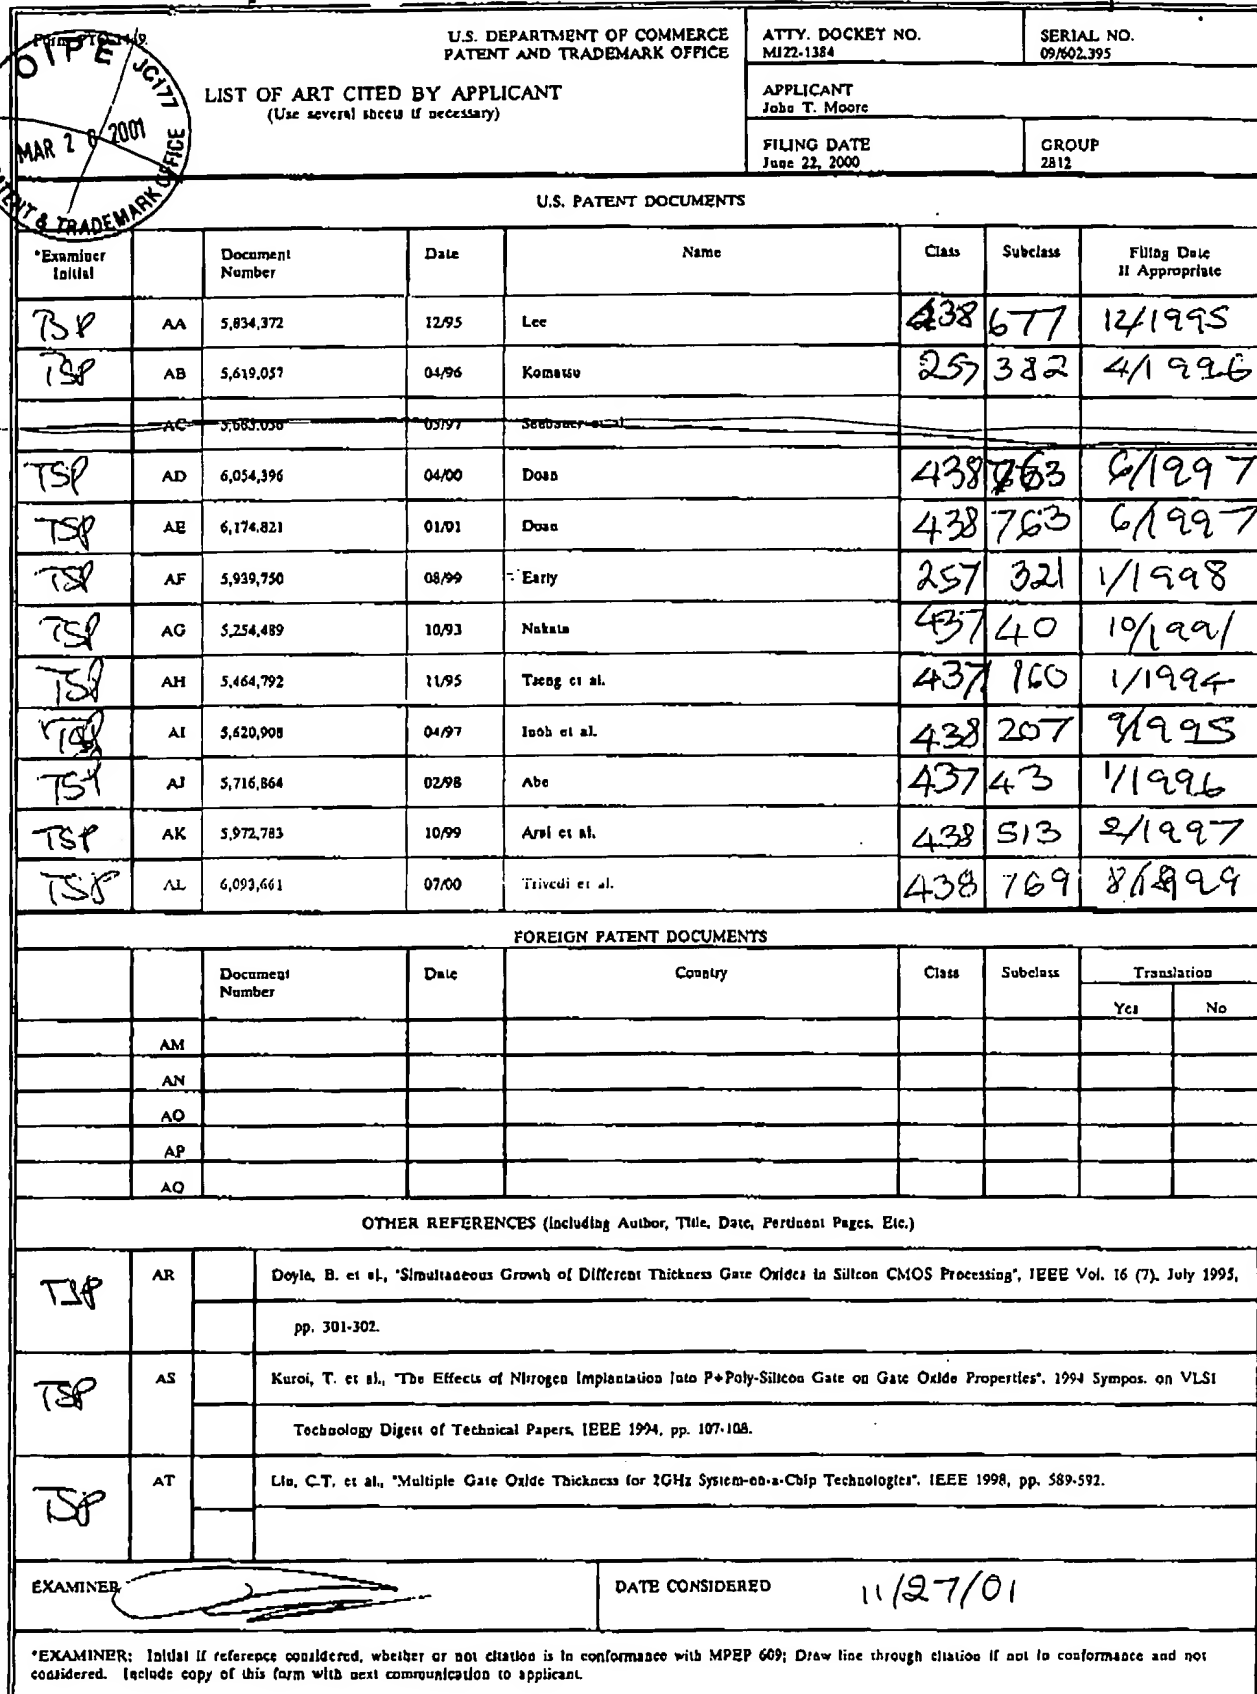 Form PTO-1449
U.S. DEPARTMENT OF COMMERCE
PATENT AND TRADEMARK OFFICE
ATTY. DOCKET NO.
MI22-1384
SERIAL NO.
09/602,395
OIPE JC177
MAR 2 2001
PATENT & TRADEMARK OFFICE
LIST OF ART CITED BY APPLICANT
(Use several sheets if necessary)
APPLICANT
John T. Moore
FILING DATE
June 22, 2000
GROUP
2812
U.S. PATENT DOCUMENTS
*Examiner Initial Document Number Date Name Class Subclass Filing Date If Appropriate
TSP AA 5,834,372 12/95 Lee 438 677 12/1995
TSP AB 5,619,057 04/96 Komatsu 257 382 4/1996
AC
TSP AD 6,054,396 04/00 Doan 438 763 6/1997
TSP AE 6,174,821 01/01 Doan 438 763 6/1997
TSP AF 5,939,750 08/99 Early 257 321 1/1998
TSP AG 5,254,489 10/93 Nakata 437 40 10/1991
TSP AH 5,464,792 11/95 Tseng et al. 437 160 1/1994
TSP AI 5,620,908 04/97 Inoh et al. 438 207 9/1995
TSP AJ 5,716,864 02/98 Abe 437 43 1/1996
TSP AK 5,972,783 10/99 Arai et al. 438 513 2/1997
TSP AL 6,093,661 07/00 Trivedi et al. 438 769 8/1999
FOREIGN PATENT DOCUMENTS
Document Number Date Country Class Subclass Translation
Yes No
AM
AN
AO
AP
AQ
OTHER REFERENCES (Including Author, Title, Date, Pertinent Pages, Etc.)
TSP AR Doyle, B. et al., "Simultaneous Growth of Different Thickness Gate Oxides in Silicon CMOS Processing", IEEE Vol. 16 (7), July 1995,
pp. 301-302.
TSP AS Kuroi, T. et al., "The Effects of Nitrogen Implantation Into P+Poly-Silicon Gate on Gate Oxide Properties", 1994 Sympos. on VLSI
Technology Digest of Technical Papers, IEEE 1994, pp. 107-108.
TSP AT Liu, C.T. et al., "Multiple Gate Oxide Thickness for 2GHz System-on-a-Chip Technologies", IEEE 1998, pp. 589-592.
EXAMINER
DATE CONSIDERED 11/27/01
*EXAMINER: Initial if reference considered, whether or not citation is in conformance with MPEP 609; Draw line through citation if not in conformance and not
considered. Include copy of this form with next communication to applicant.